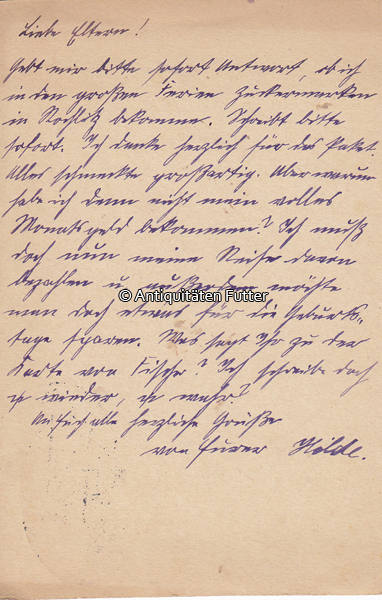 Liebe Eltern!
Gebt mir bitte sofort Antwort, ob ich
in den großen Ferien
in Rochlitz bekomme. Schreibt bitte
sofort. Ich danke herzlich für das Paket.
Alles schmeckte großartig. Aber warum
habe ich denn nicht mein volles
Monatsgeld bekommen? Ich muß
doch nun meine Reise davon
bezahlen u. außerdem möchte
© Antiquitäten Futter
man doch etwas für die Geburts-
tage sparen. Was sagt Ihr zu der
Karte von Fischer? Ich schreibe doch
wieder, wahr?
An Euch alle herzliche Grüße
von Eurer Hilde.